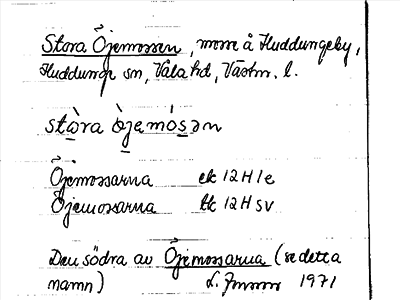 Stora Öjemossen, mosse å Huddungeby,
Huddunge sn, Vala hd, Västm. l.
stɑ̀ra òjemósən
Öjemossarna ek 12H1e
Öjemossarna tk 12HSV
Den södra av Öjemossarna (se detta
namn) L. 1971